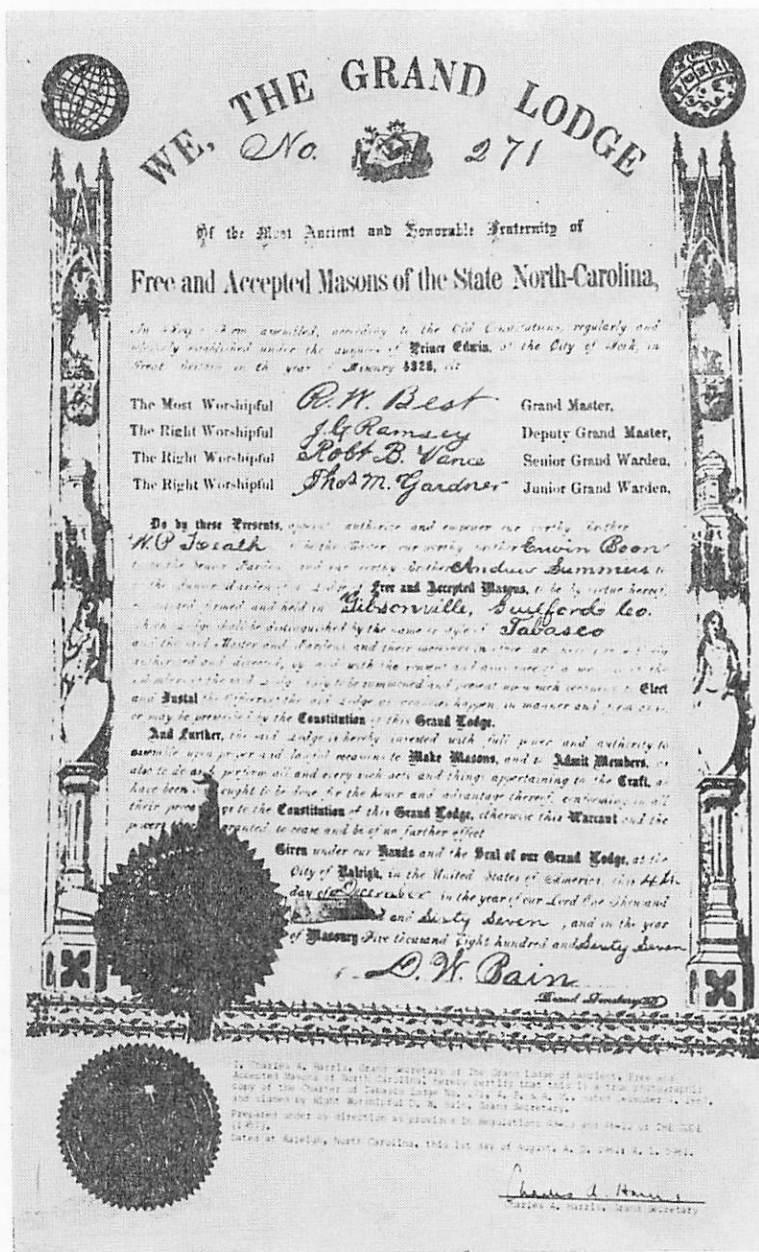 WE, THE GRAND LODGE
No. 271
Of the Most Ancient and Honorable Fraternity of
Free and Accepted Masons of the State North-Carolina,
In Form assembled, according to the Old Constitutions, regularly and
established under the auspices of Prince Edwin, at the City of York, in
Great Britain in the year of Masonry 4926, viz
The Most Worshipful R. W. Best Grand Master,
The Right Worshipful J. G Ramsey Deputy Grand Master,
The Right Worshipful Robt B. Vance Senior Grand Warden,
The Right Worshipful Thos M. Gardner Junior Grand Warden,
Do by these Presents, appoint authorize and empower our worthy brother
W. P. to be the Master our worthy brother Erwin Boon
to be the Senior Warden and our worthy brother Andrew Summers to
be the Junior Warden of a Lodge of Free and Accepted Masons, to be by virtue hereof,
formed and held in Gibsonville, Guilford Co.
which Lodge shall be distinguished by the name or style of Tabasco
and the said Master and Wardens and their successors in office are hereby
authorized and directed, by and with the consent and assistance of a of the
Members of the said Lodge duly to be summoned and present upon such occasions to Elect
and Instal the Officers of the said Lodge as vacancies happen, in manner and form as is,
or may be prescribed by the Constitution of this Grand Lodge.
And Further, the said Lodge is hereby invested with full power and authority to
assemble upon proper and lawful occasions to Make Masons, and to Admit Members, as
also to do and perform all and every such acts and things appertaining to the Craft, as
have been and ought to be done for the honor and advantage thereof, conforming in all
their to the Constitution of this Grand Lodge, otherwise this Warrant and the
powers granted to cease and be of no further effect
Given under our Hands and the Seal of our Grand Lodge, at the
City of Raleigh, in the United States of America, this 4th
day of December in the year of our Lord One Thousand
and Sixty Seven, and in the year
of Masonry Five thousand Eight hundred and Sixty Seven
D. W. Bain
Grand Secretary
I, Charles A. Harris, Grand Secretary of The Grand Lodge of Ancient, Free and
Accepted Masons of North Carolina, hereby certify that this is a true photographic
copy of the Charter of Tabasco Lodge No. 271, A. F. & A. M., dated December 4, 1867,
and signed by Right Worshipful D. W. Bain, Grand Secretary.
Prepared under my direction as provided in Regulations of THE CODE
Dated at Raleigh, North Carolina, this 1st day of August, A. D.
Charles A. Harris
Charles A. Harris, Grand Secretary